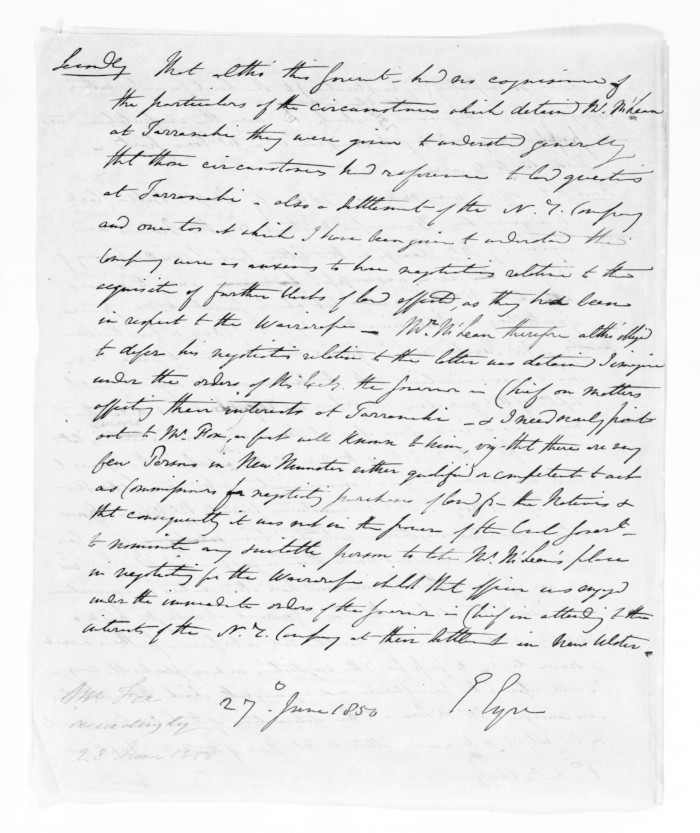 Secondly That altho' this Governt. had no cognisance of
the particulars of the circumstances which detained Mr. McLean
at Tarranaki they were given to understand generally
that those circumstances had reference to land questions
at Tarranaki - also a settlement of the N. Z. Company
and one too at which I have been given to understand the
Company were as anxious to have negotiations relative to the
acquisition of further blocks of land effected, as they had been
in respect to the Wairarapa — Mr. McLean therefore altho' obliged
to defer his negotiations relative to the latter was detained I imagine
under the orders of His Excly. the Governor in Chief on matters
affecting their interests at Tarranaki — & I need merely point
out to Mr. Fox, a fact well known to him, viz that there are very
few Persons in New Munster either qualified or competent to act
as Commissioners for negotiating purchases of land fm. the Natives &
that consequently it was not in the power of the Local Governt.
to nominate any suitable person to take Mr. McLean's place
in negotiating for the Wairarapa whilst that officer was engaged
under the immediate orders of the Governor in Chief in attending to the
interests of the N. Z. Company at their settlement in New Ulster.
27 June 1850 E. Eyre
accordingly
28 June 1850